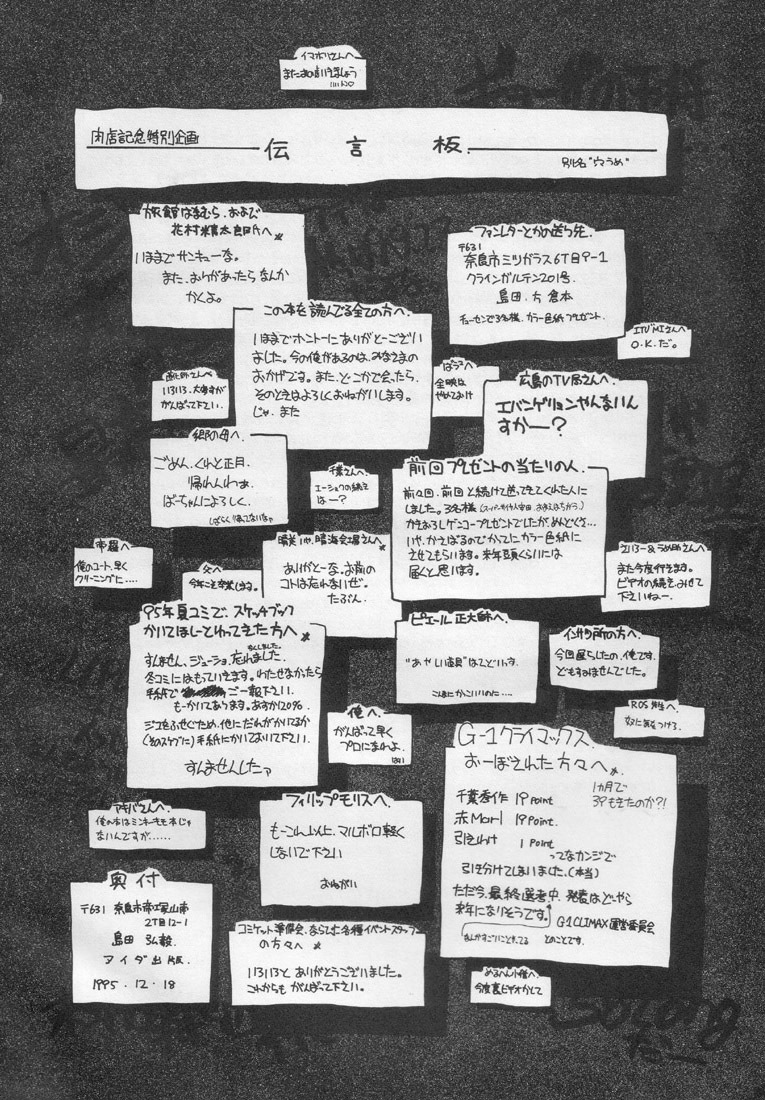 イマホリさんへ
またおあいしましょう
肉店記念特別企画
伝言板
別名"穴うめ"
旅館はまむら、および
花村米慎太郎氏へ
いままでサンキューな。
また、おりがあったら なんか
かくよ。
ファンレターとかの送り先
〒631
奈良市ミツガラス6丁目9-1
クラインガルテン201号
島田.方 倉本
チューセンで3名様、カラー色紙プレゼント.
この本を読んでる全ての方へ.
いままでホントーにありがとーござい
ました。今の俺があるのは、みなさまの
おかげです。また、どこかで会ったら、
そのときはよろしくおねがいします。
じゃ、また
O.K.だ。
いろいろ、大変すが
がんばって下さい.
広島のTV局さんへ.
エバンゲリョンやんないん
すかー?
郷の母へ.
ごめん、くれと正月、
帰れんわぁ.
ばーちゃんによろしく.
しばらく帰ってないなぁ
千葉さんへ.
エーショウの続き
はー?
前回プレゼントの当たりの人.
前々回、前回と続けて送ってきてくれた人に
しました。3名様
かきおろしゲンコープレゼントでしたが、めんどくさ…
いや、かえばるのでかってにカラー色紙に
させてもらいます。来年頭くらいには
届くと思います.
帝羅へ
俺のコート、早く
クリーニングに.....
父へ.
今年こそ卒業します。
晴海会場さんへ
ありがとーな、お前の
コトは忘れないぜ.
たぶん.
また今度行きます。
ビデオの続き、みせて
下さいねー.
95年夏コミで、スケッチブック
かいてほしーとゆってきた方へ
すんません、ジューショ、忘れました.
冬コミにはもっていきます。わたせなかったら
手紙で ご一報下さい.
もーかいてあります。あすか120%.
ジコをふせぐため、他にだれがかいてるか
(そのスケブに)手紙にかいておいて下さい.
すんませんしたァ
ピエール正大師へ.
"あやしい道具"はてどいっす.
こんなにかっこいいのに....
インサツ所の方へ.
今回遅らしたの、俺です。
どもすみませんでした。
ROS先生へ.
奴に気をつけろ.
俺へ.
がんばって早く
プロになれよ.
はい
G-1クライマックス.
おーぼされた方々へ
千葉秀作 19 Point
赤Marl 19 Point.
引きわけ 1 Point
1カ月で
39もきたのか?!
ってなカンジで
引き分けてしまいました.(本当)
ただ今、最終選考中. 発表はどーやら
来年になりそうです。
G-1 CLIMAX運営委員会
なんかすごいことやってる とのことです.
アキバさんへ.
俺の本はミンキーモモ本じゃ
ないんですが......
フィリップモリスへ.
もーこれ以上、マルボロ軽く
しないで下さい
おねがい
奥付
〒631 奈良市帝塚山南
2丁目12-1
島田 弘毅.
アイダ出版.
1995.12.18
コミケット準備会、ならびに各種イベントスタッフー
の方々へ
いろいろと ありがとうございました。
これからも がんばって下さい.
めるへん小僧へ.
今度裏ビデオかして